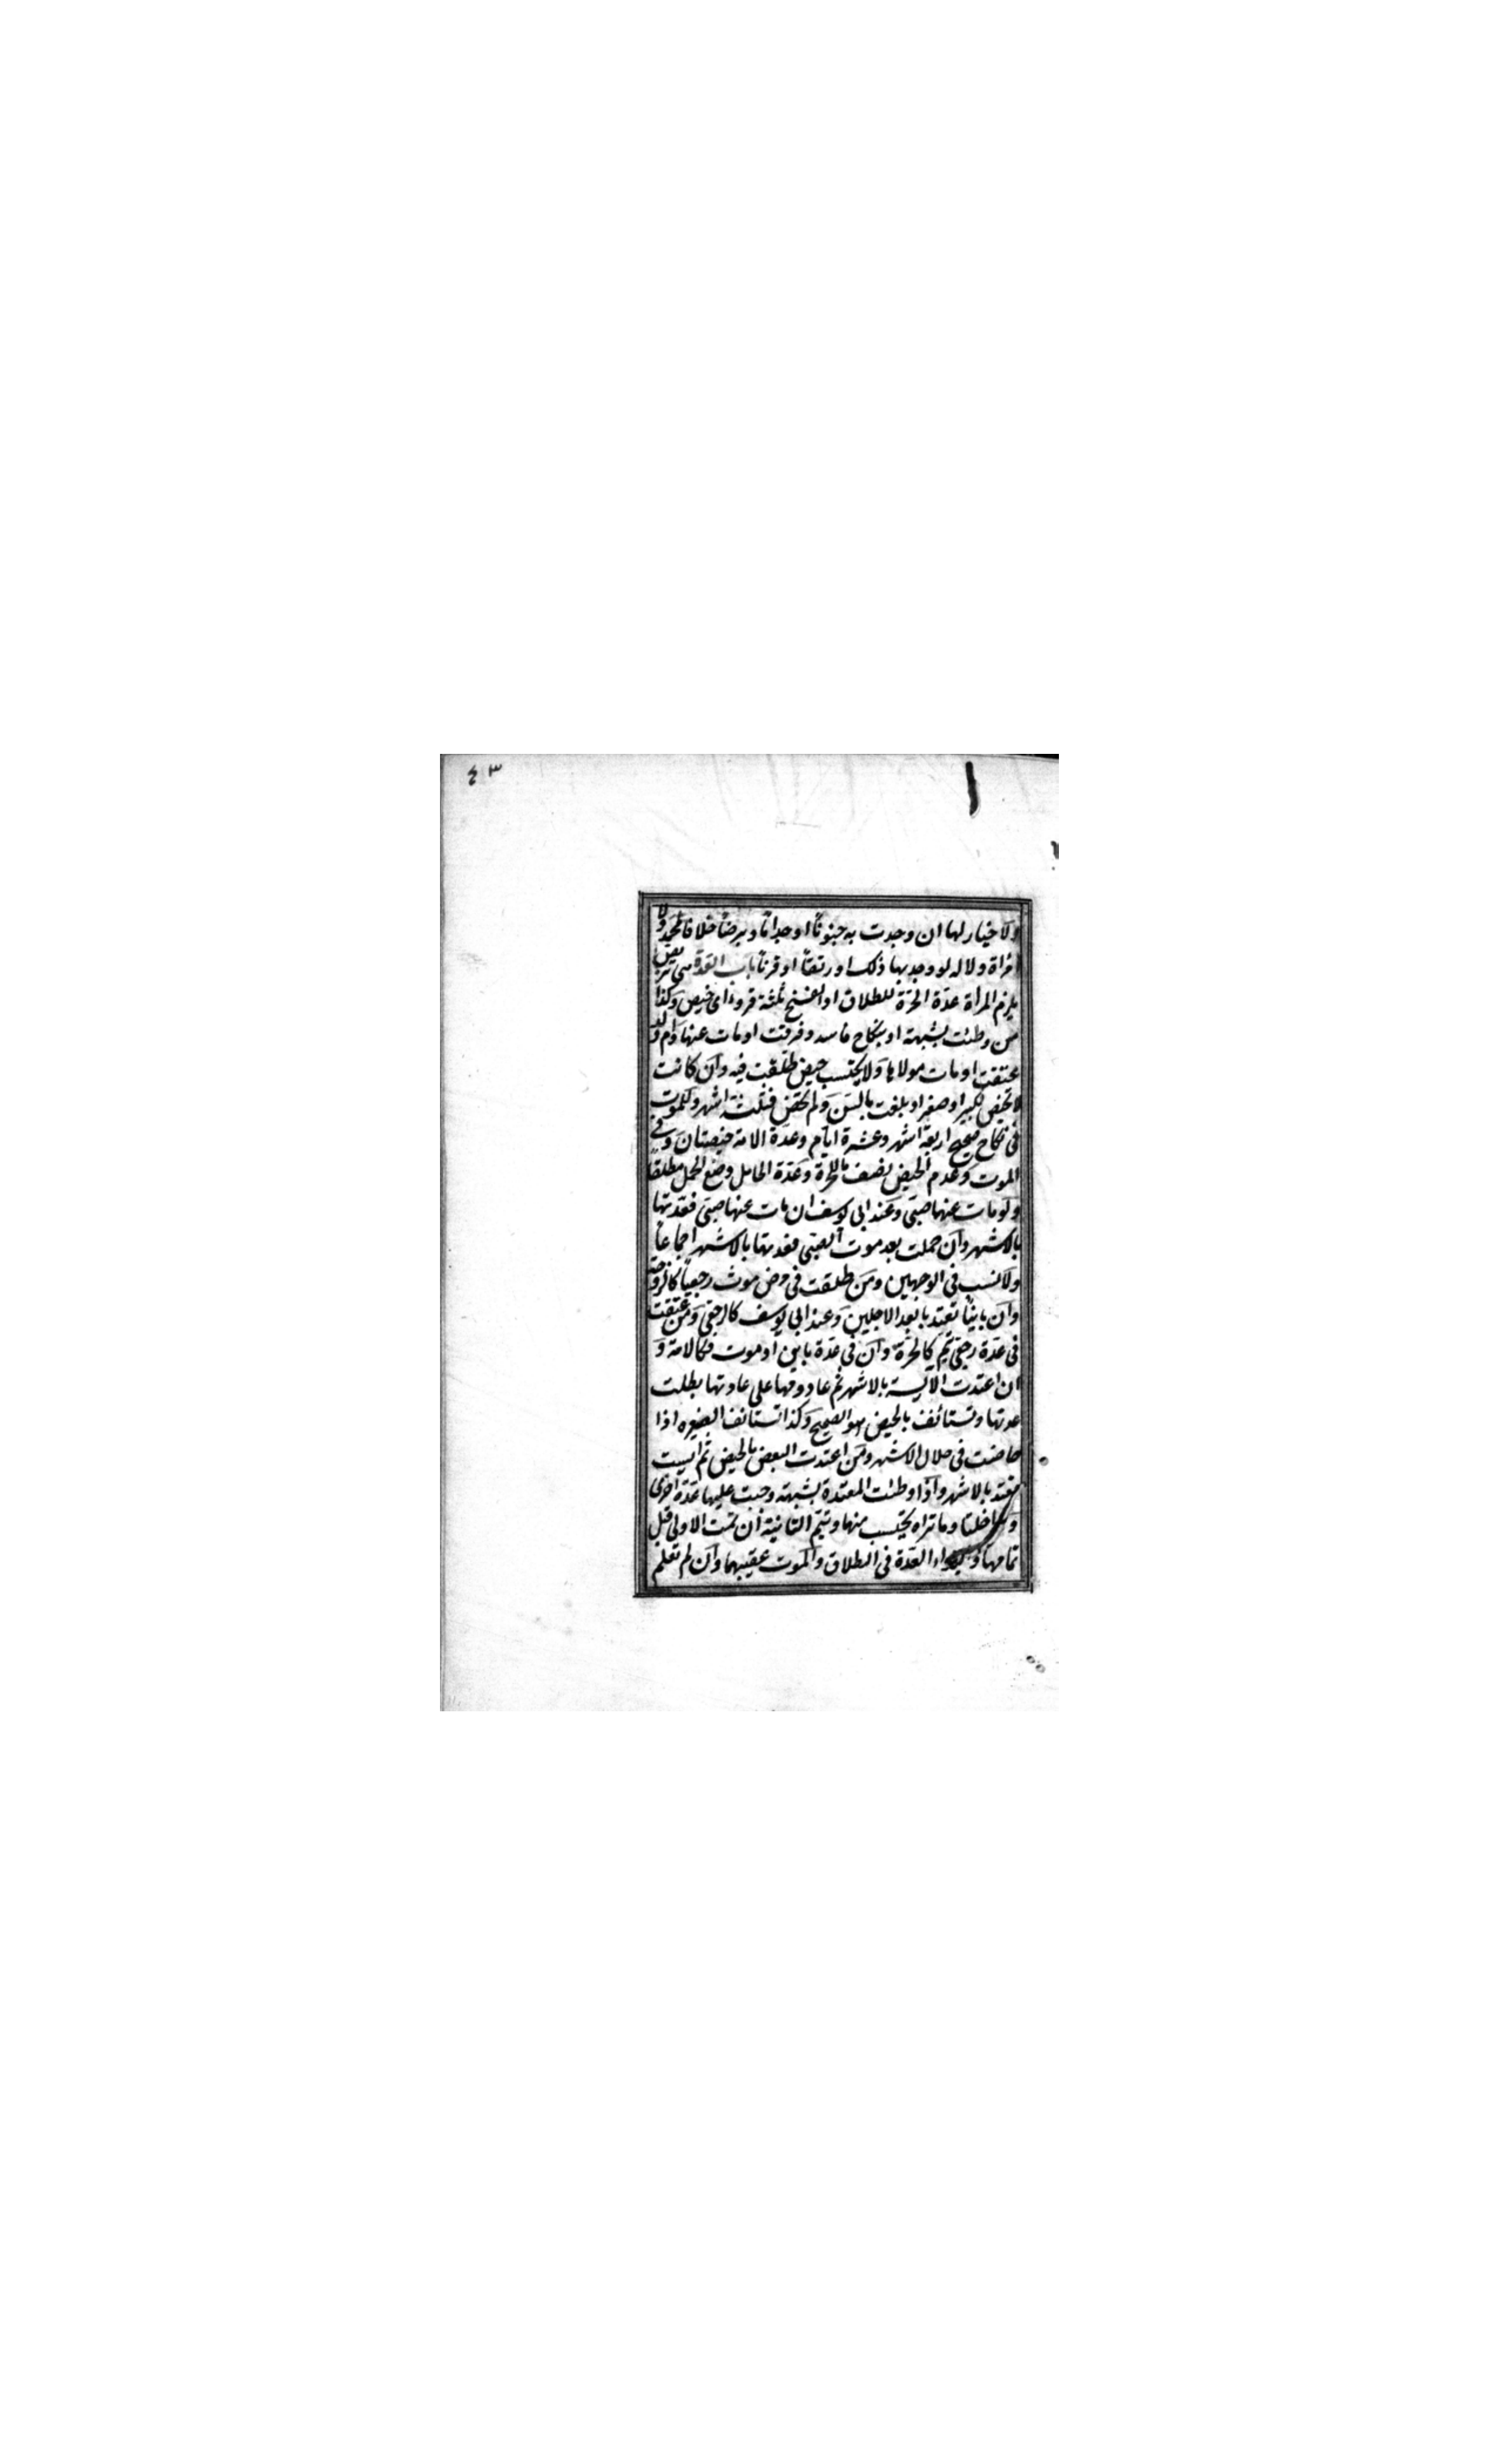 ٤٣
ولا خيار لها ان وجدت به جنونا او جذاما او برصا خلافا لمحمد ولا
امرأة ولا له لو وجد بها ذلك او رتقا او قرنا باب العدة هي تربص
يلزم المرأة عدة الحرة للطلاق او الفسخ ثلثة قروء اى حيض وكذا
من وطئت بشبهة او بنكاح فاسد وفرقت او مات عنها وام ولد
عتقت او مات مولاها ولا يحتسب حيض طلقت فيه وان كانت
لا تحيض لكبر او صغر او بلغت بالسن ولم تحض فثلثة اشهر وللموت
فى نكاح صحيح اربعة اشهر وعشرة ايام وعدة الامة حيضتان وفى
الموت وعدم الحيض نصف ما للحرة وعدة الحامل وضع الحمل مطلقا
ولو مات عنها صبى وعند ابى يوسف ان مات عنها صبى فعدتها
بالاشهر وان حملت بعد موت الصبى فعدتها بالاشهر اجماعا
ولا نسب فى الوجهين ومن طلقت فى مرض موت رجعيا كالزوجة
وان باينا تعتد بابعد الاجلين وعند ابى يوسف كالرجعى ومن عتقت
فى عدة رجعى تتم كالحرة وان فى عدة باين او موت فكالامة و
ان اعتدت الآيسة بالاشهر ثم عاد دمها على عادتها بطلت
عدتها وتستأنف بالحيض هو الصحيح وكذا تستأنف الصغيرة اذا
حاضت فى خلال الاشهر ومن اعتدت البعض بالحيض ثم ايست
تعتد بالاشهر واذا وطئت المعتدة بشبهة وجبت عليها عدة اخرى
وتداخلتا وما تراه يحتسب منها وتتم الثانية ان تمت الاولى قبل
تمامها وابتداء العدة فى الطلاق والموت عقيبهما وان لم تعلم